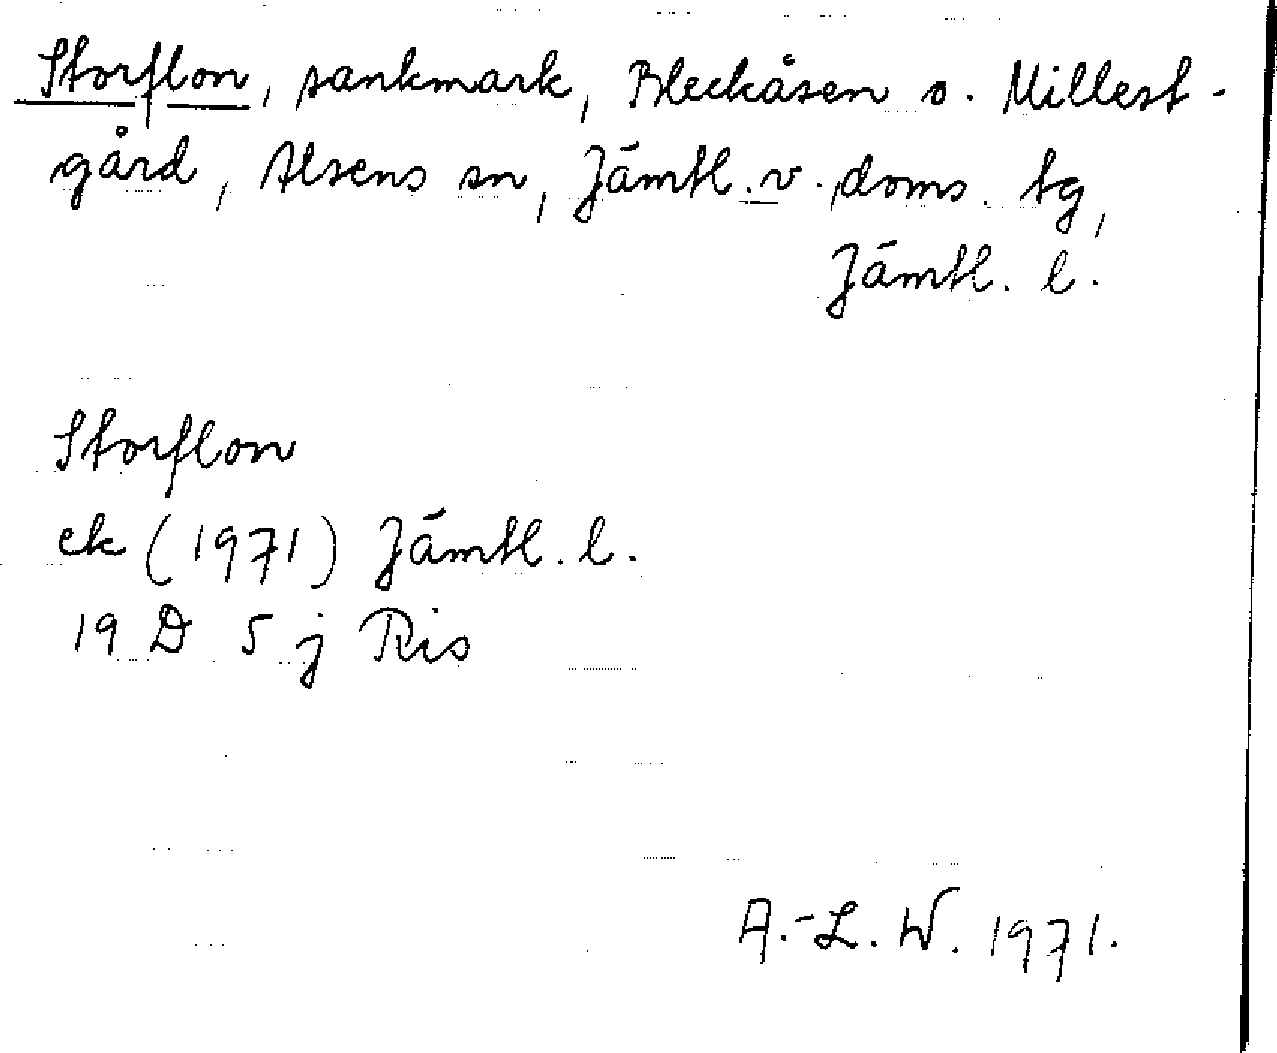 Storflon, sankmark, Bleckåsen o. Millest-
gård, Alsens sn, Jämtl. v. doms. tg,
Jämtl. l.
Storflon
ek (1971) Jämtl. l.
19 D 5 j Ris
A.-L. W. 1971.